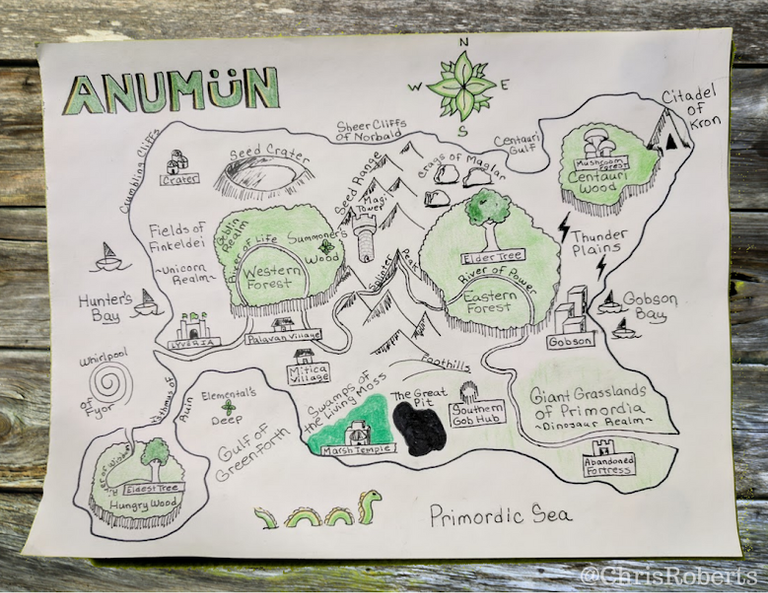 N
ANUMüN
W
E
S
Citadel
of
Kron
Sheer Cliffs
of Norbald
Centauri
Gulf
Crumbling Cliffs
Crater
Seed Crater
Seed Range
Crags of Maglar
Mushroom
Forest
Centauri
Wood
Magi
Tower
Fields of
Finkeldei
~Unicorn
Realm~
Goblin
Realm
River of Life
Summoner's
Wood
Western
Forest
Elder Tree
River of Power
Eastern
Forest
Splinter
Peak
Thunder
Plains
Hunter's
Bay
Gobson
Bay
Lyveria
Palavan Village
Gobson
Mitica
Village
Foothills
Whirlpool
of Fyor
Isthmus of
Ruin
Elemental's
Deep
Gulf of
Greenforth
Swamps of
the Living Moss
The Great
Pit
Southern
Gob Hub
Giant Grasslands
of Primordia
~Dinosaur Realm~
Marsh Temple
Abandoned
Fortress
Eldest Tree
Hungry Wood
Primordic Sea
@ChrisRoberts